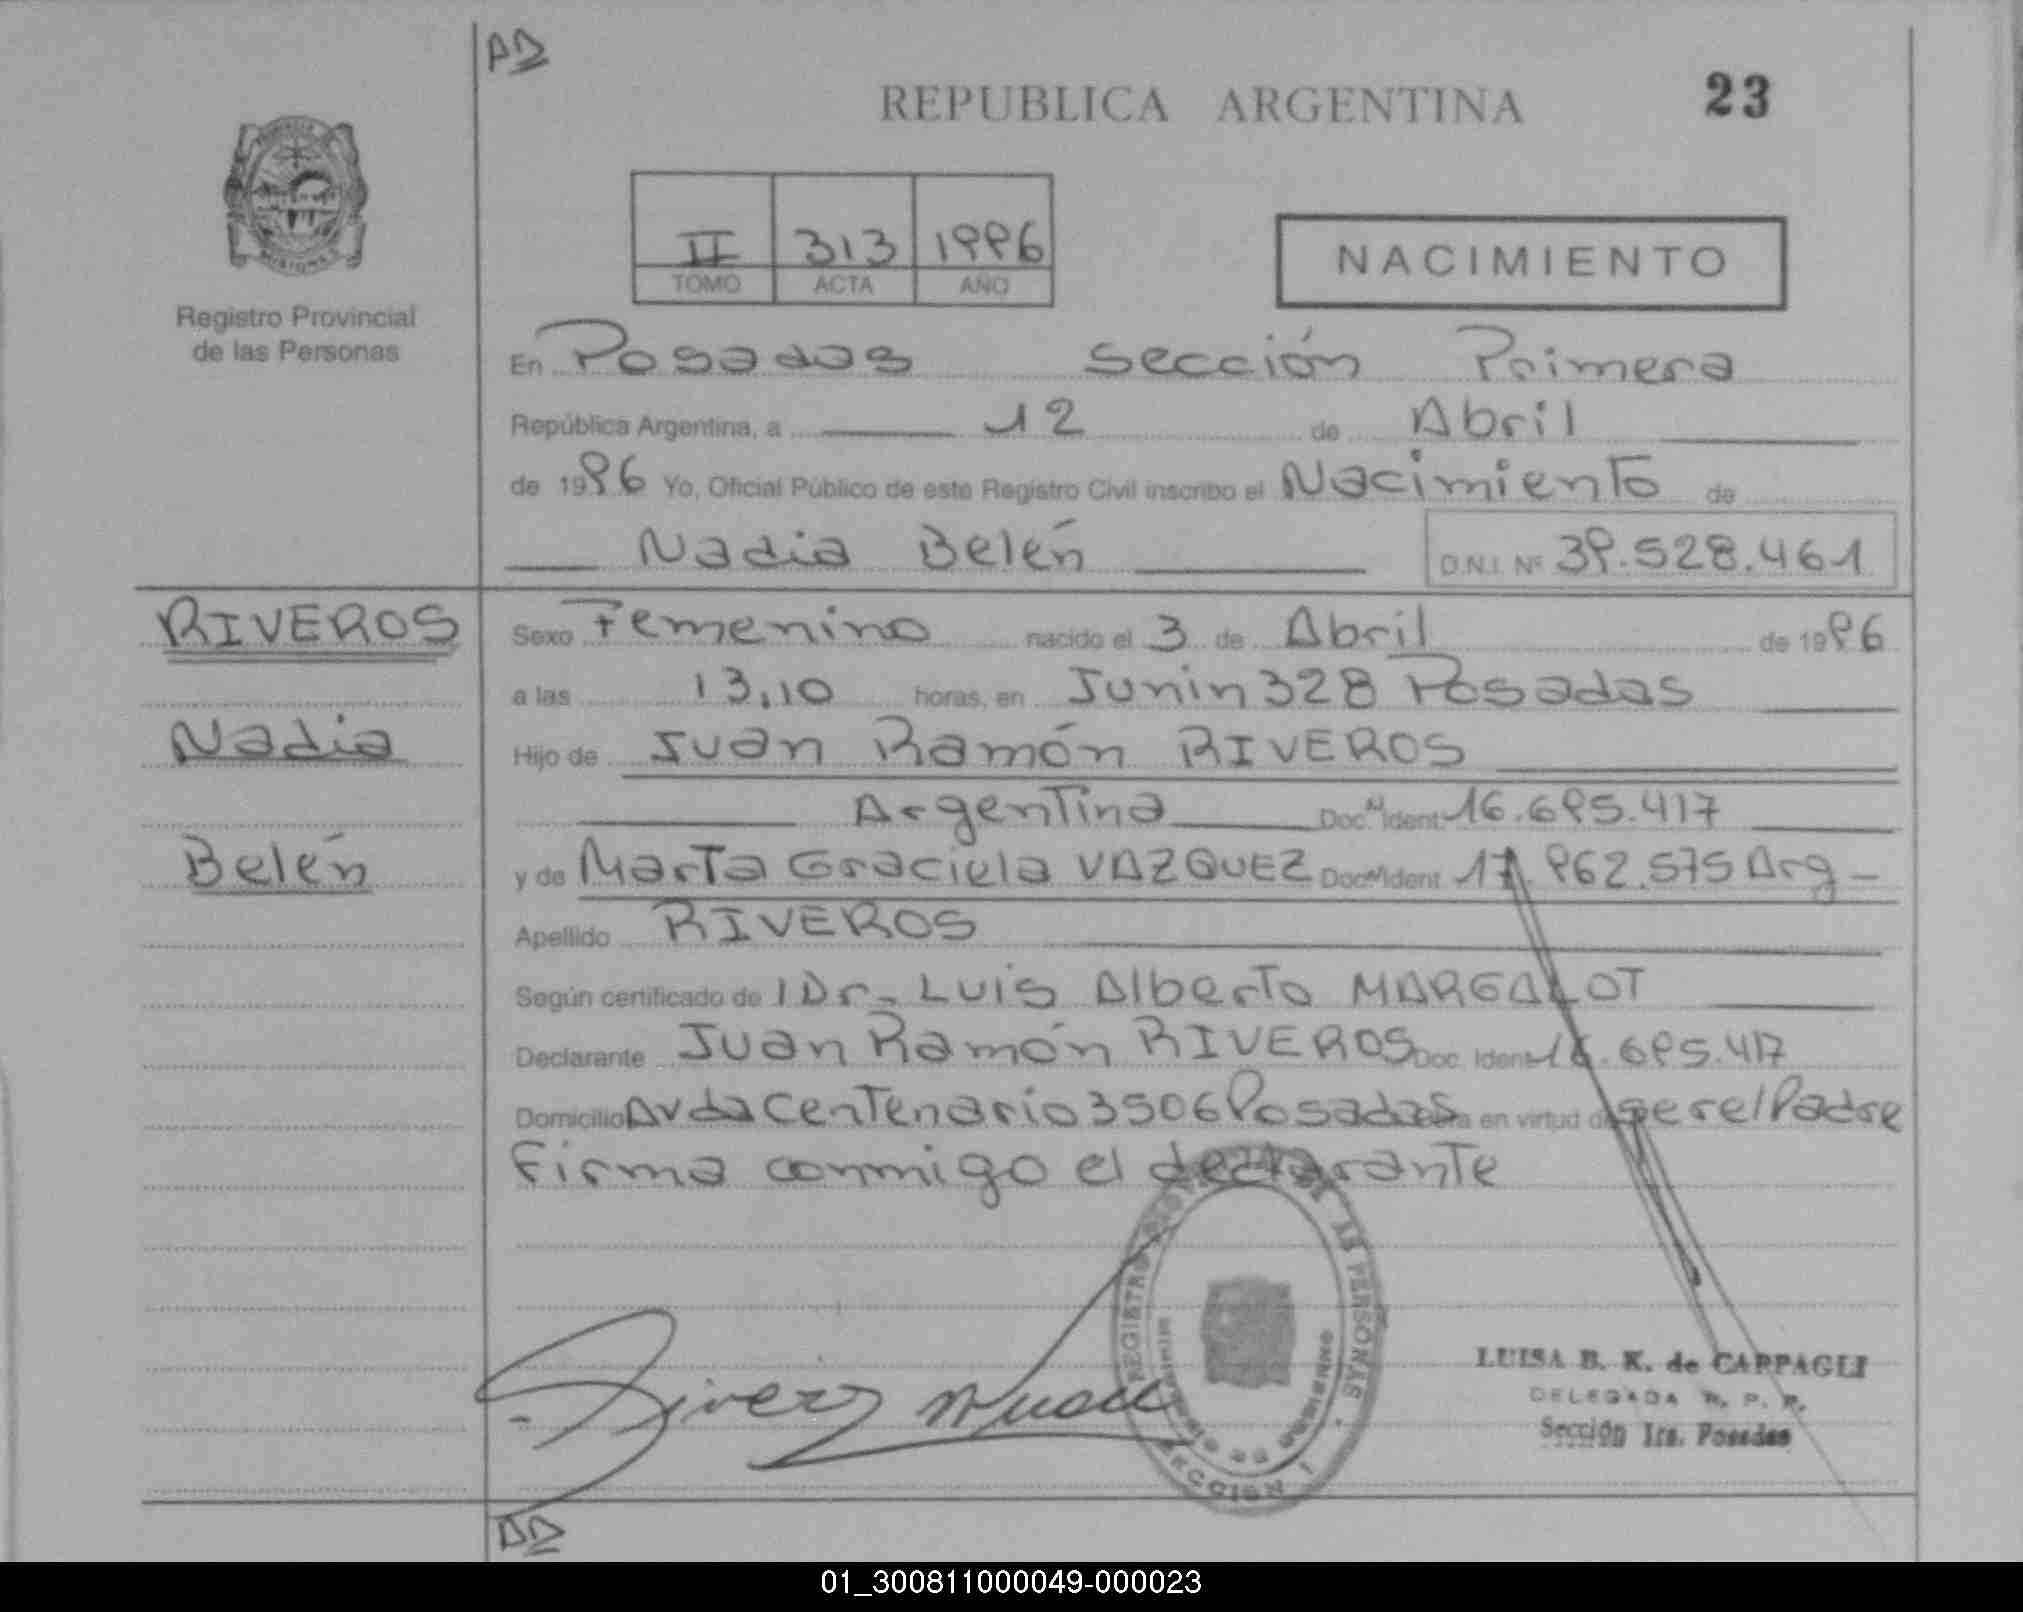 AD
REPUBLICA ARGENTINA 23
II 313 1996
TOMO ACTA AÑO
NACIMIENTO
MISIONES
Registro Provincial
de las Personas
En Posadas Sección Primera
República Argentina, a 12 de Abril
de 1996 Yo, Oficial Público de este Registro Civil inscribo el Nacimiento de
Nadia Belén D.N.I. Nº 39.528.461
RIVEROS
Nadia
Belén
Sexo Femenino nacido el 3 de Abril de 1996
a las 13,10 horas, en Junin 328 Posadas
Hijo de Juan Ramón RIVEROS
Argentina Doc. N Ident. 16.695.417
y de Marta Graciela VAZQUEZ Doc. N Ident 17.962.575 Arg
Apellido RIVEROS
Según certificado de Dr. Luis Alberto MARGALOT
Declarante Juan Ramón RIVEROS Doc. Ident 16.695.417
Domicilio Avda Centenario 3506 Posadas en virtud de ser el Padre
Firma conmigo el declarante
REGISTRO PERSONAS
SECCION 1
LUISA B. K. de CAPPAGLI
DELEGADA R. P. P.
Sección 1ra. Posadas
AD
01_300811000049-000023